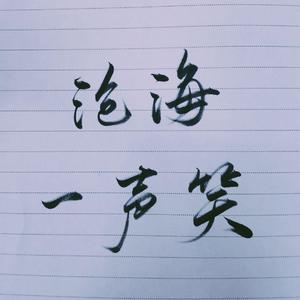 沧海
一声笑